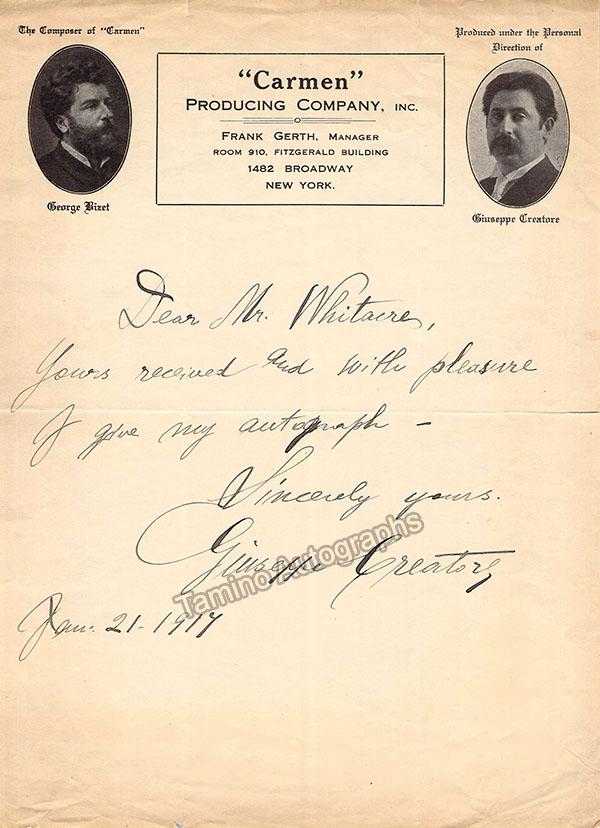 The Composer of "Carmen"
George Bizet
"Carmen"
PRODUCING COMPANY, INC.
FRANK GERTH, MANAGER
ROOM 910, FITZGERALD BUILDING
1482 BROADWAY
NEW YORK.
Produced under the Personal
Direction of
Giuseppe Creatore
Dear Mr. Whitacre,
Yours received and with pleasure
I give my autograph –
Sincerely yours.
Giuseppe Creatore
Tamino Autographs
Jan. 21 - 1917